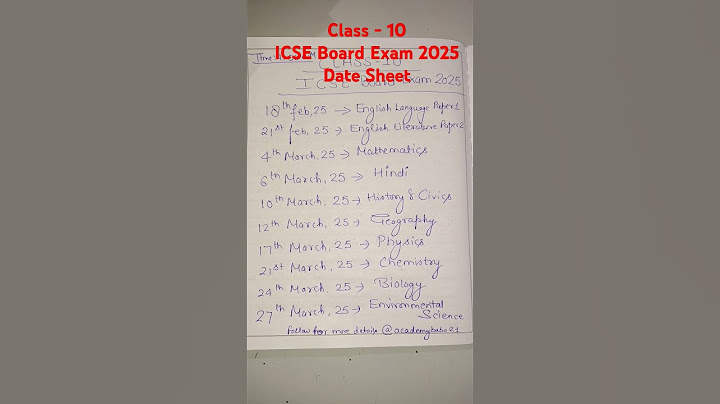 Class - 10
ICSE Board Exam 2025
Date Sheet
CLASS-10
ICSE Board Exam 2025
18th feb, 25 → English Language Paper 1
21st feb, 25 → English Literature Paper 2
4th March, 25 → Mathematics
6th March, 25 → Hindi
10th March, 25 → History & Civics
12th March, 25 → Geography
17th March, 25 → Physics
21st March, 25 → Chemistry
24th March, 25 → Biology
27th March, 25 → Environmental
Science
Follow for more details @academybabe21